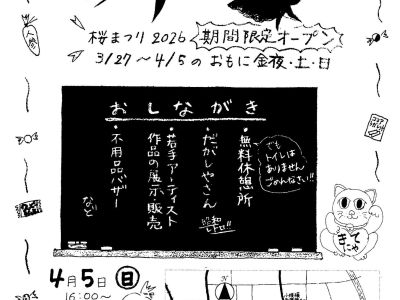 桜まつり2026 期間限定オープン
3/27～4/5のおもに金夜・土・日
おしながき
・無料休憩所
でも
トイレは
ありません
ごめんなさい!!
・だがしやさん
昭和
レトロ!!
・若手アーティスト
作品の展示・販売
・不用品バザー
など
きてにゃ
人参
4月5日(日)
16:00～
N